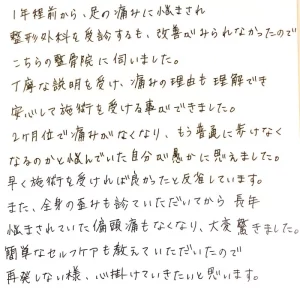 1年程前から、足の痛みに悩まされ
整形外科を受診するも、改善がみられなかったので
こちらの整骨院に伺いました。
丁寧な説明を受け、痛みの理由も理解でき
安心して施術を受ける事ができました。
2ヶ月位で痛みがなくなり、もう普通に歩けなく
なるのかと悩んでいた自分が愚かに思えました。
早く施術を受ければ良かったと反省しています。
また、全身の歪みも診ていただいてから 長年
悩まされていた偏頭痛もなくなり、大変驚きました。
簡単なセルフケアも教えていただいたので
再発しない様、心掛けていきたいと思います。